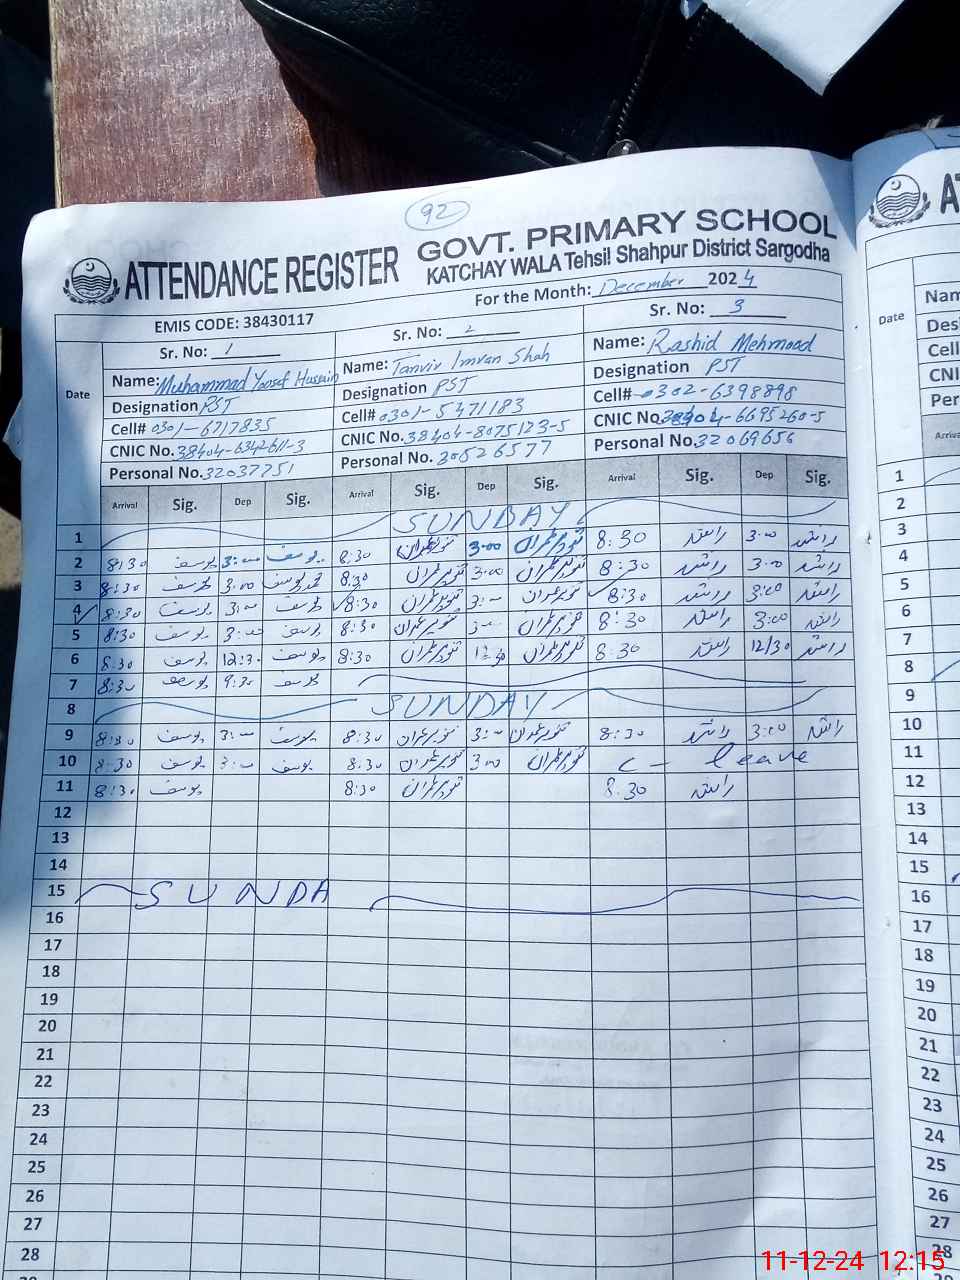 92
ATTENDANCE REGISTER GOVT. PRIMARY SCHOOL
KATCHAY WALA Tehsil Shahpur District Sargodha
For the Month: December 2024
EMIS CODE: 38430117
Sr. No: 1 Sr. No: 2 Sr. No: 3
Date
Name: Muhammad Yoosef Hussain Name: Tanvir Imran Shah Name: Rashid Mehmood
Designation PST Designation PST Designation PST
Cell# 0301-6717835 Cell# 0301-5471183 Cell# 0302-6398898
CNIC No. 38404-6342611-3 CNIC No. 38404-8075123-5 CNIC No. 38404-6695260-5
Personal No. 32037751 Personal No. 30526577 Personal No. 32069656
Arrival Sig. Dep Sig. Arrival Sig. Dep Sig. Arrival Sig. Dep Sig.
1 SUNDAY
2 8:30 یوسف 3:00 یوسف 8:30 تنویر عمران 3:00 تنویر عمران 8:30 راشد 3:00 راشد
3 8:30 یوسف 3:00 محمد یوسف 8:30 تنویر عمران 3:00 تنویر عمران 8:30 راشد 3:00 راشد
4 8:30 یوسف 3:00 یوسف 8:30 تنویر عمران 3:00 تنویر عمران 8:30 راشد 3:00 راشد
5 8:30 یوسف 3:00 یوسف 8:30 تنویر عمران 3:00 تنویر عمران 8:30 راشد 3:00 راشد
6 8:30 یوسف 12:30 یوسف 8:30 تنویر عمران 12:30 تنویر عمران 8:30 راشد 12/30 راشد
7 8:30 یوسف 9:30 یوسف
8 SUNDAY
9 8:30 یوسف 3:00 یوسف 8:30 تنویر عمران 3:00 تنویر عمران 8:30 راشد 3:00 راشد
10 8:30 یوسف 3:00 یوسف 8:30 تنویر عمران 3:00 تنویر عمران C - leave
11 8:30 یوسف 8:30 تنویر عمران 8:30 راشد
12
13
14
15 SUNDA
16
17
18
19
20
21
22
23
24
25
26
27
28
Date
Arrival
1
2
3
4
5
6
7
8
9
10
11
12
13
14
15
16
17
18
19
20
21
22
23
24
25
26
27
28
11-12-24 12:15